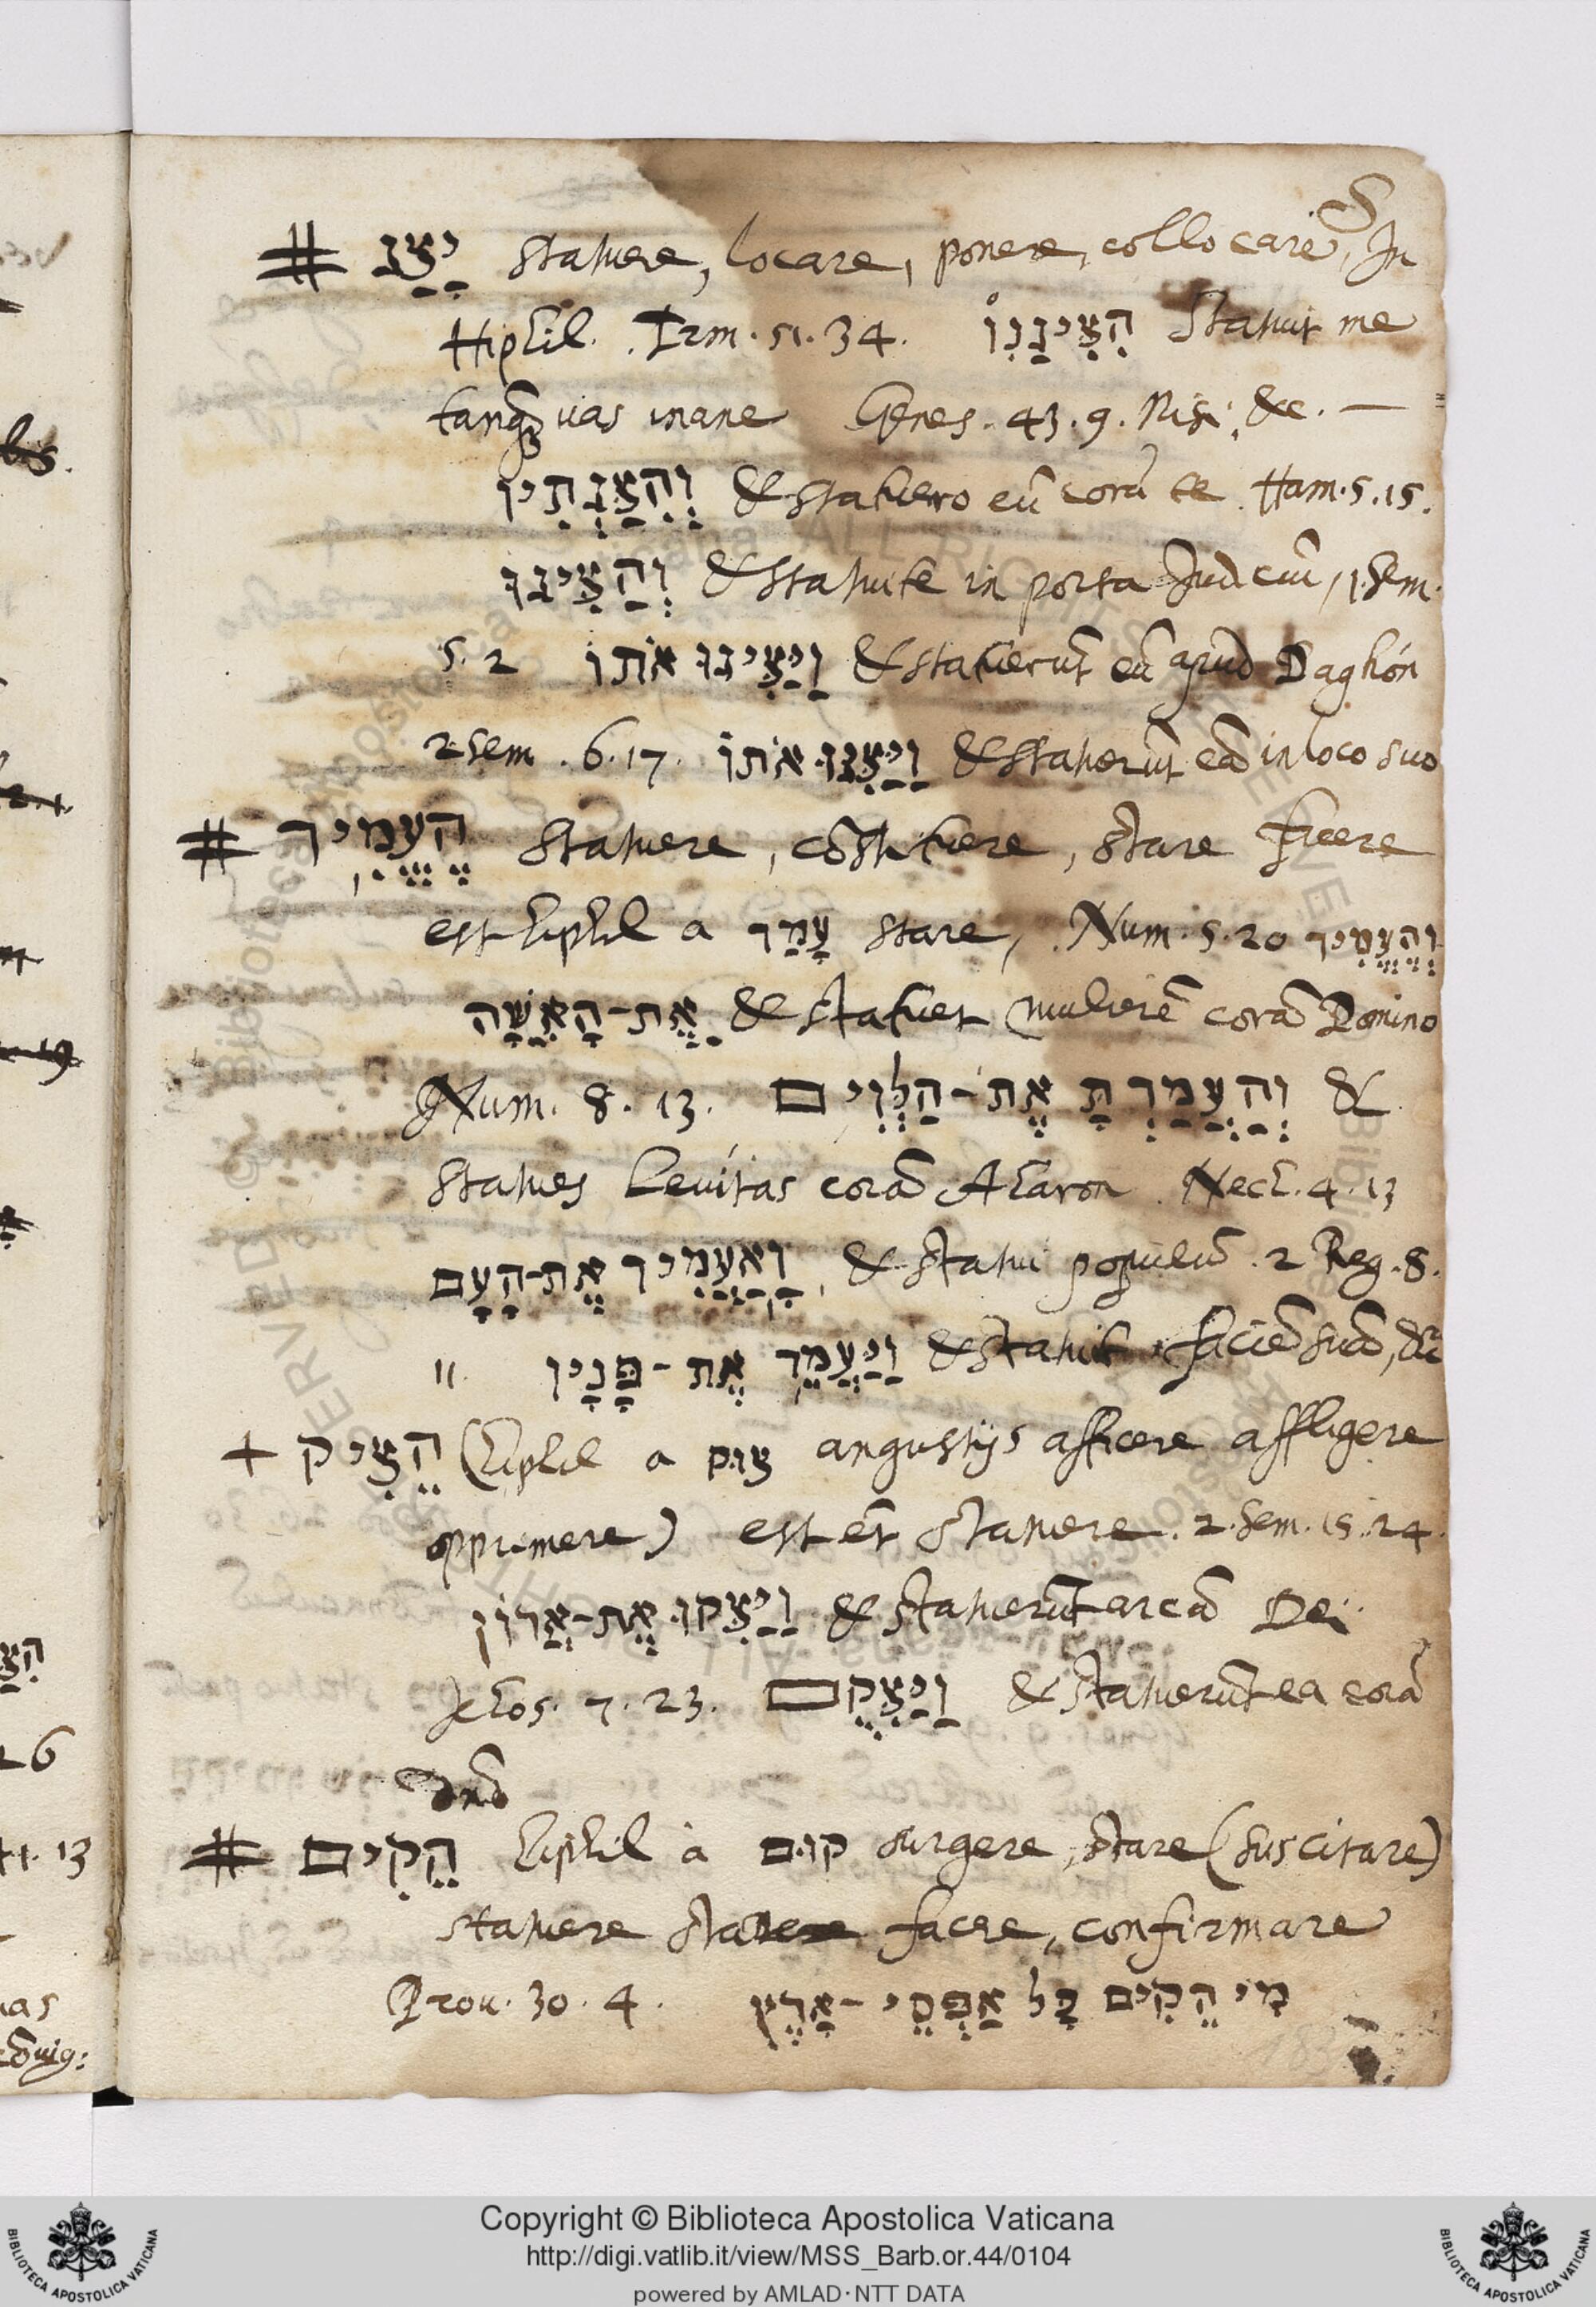 S
# יַצַג statuere, locare, ponere, collocare, In
Hiphil. Irm. 51. 34. הִצִּיגָנִוֹ Statuit me
tanq̃ uas inane Genes. 43. 9. Nisi, &c. —
וְהִצַּגְתִּיו & statuero eũ corã te. Ham. 5. 15.
וְהַצִּיגוּ & statuite in porta Judiciũ, 1. Sem.
5. 2 וַיַּצִּיגוּ אֹתוֹ & statuerũt eũ apud Daghón
2 Sem. 6. 17. וַיַּצִּגוּ אֹתוֹ & statuerũt eã in loco suo
# הֶעֱמִיד statuere, cõstituere, stare facere
est hiphil a עָמַד stare, Num. 5. 20 וְהֶעֱמִיד
אֶת-הָאִשָּׁה & statuet mulierẽ corã Domino
Num. 8. 13. וְהַעֲמַדְתָּ אֶת-הַלְוִיִם &
statues Leuítas corã Aharon. Nech. 4. 13
וָאַעֲמִיד אֶת-הָעָם, & statui populũ. 2 Reg. 8.
11. וַיַּעֲמֵד אֶת-פָּנָיו & statuit faciẽ suã, &c
+ הֵצִיק (hiphil a צוּק angustijs afficere affligere
opprimere) est et̃ statuere. 2. Sem. 15. 24.
וַיַּצִּקוּ אֶת-אֲרוֹן & statuerũt arcã Dei.
Jehos. 7. 23. וַיַּצִּקֻם & statuerũt ea corã
Dnõ
# הֵקִים hiphil à קוּם surgere, stare (suscitare)
statuere facere, confirmare
Prou. 30. 4. מִי הֵקִים כָּל אַפְסֵי-אָרֶץ
183
Copyright © Biblioteca Apostolica Vaticana
http://digi.vatlib.it/view/MSS_Barb.or.44/0104
powered by AMLAD·NTT DATA
BIBLIOTECA APOSTOLICA VATICANA
BIBLIOTECA APOSTOLICA VATICANA